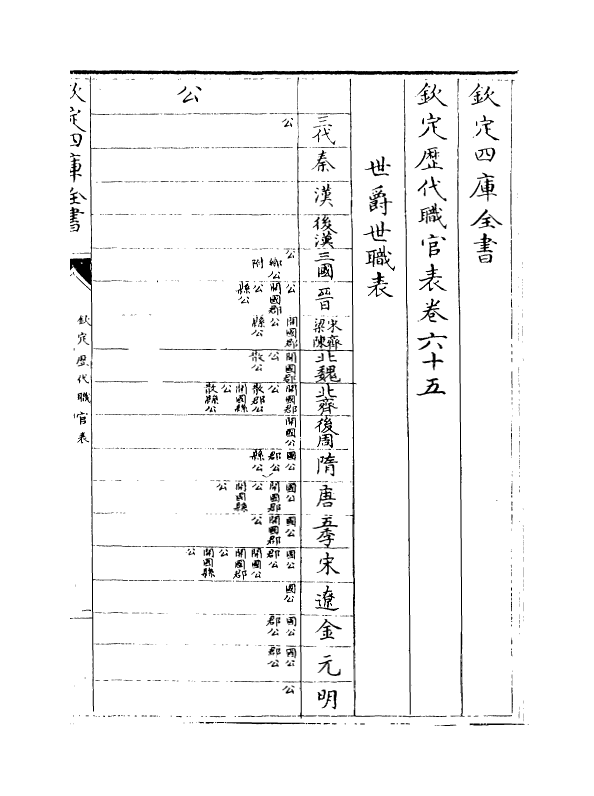 欽定四庫全書
欽定歷代職官表卷六十五
世爵世職表
三代
秦
漢
後漢
三國
晉
宋齊
梁陳
北魏
北齊
後周
隋
唐
五季
宋
遼
金
元
明
公
公
公
鄉公
附
公
開國郡
公
縣公
開國郡
公
縣公
開國郡
公
散公
開國郡
公
散郡公
開國縣
公
散縣公
開國公
國公
郡公
縣公
國公
開國郡
公
開國縣
公
國公
開國郡
公
國公
郡公
開國公
開國郡
公
開國縣
公
國公
國公
郡公
國公
郡公
公
欽定四庫全書
欽定歷代職官表